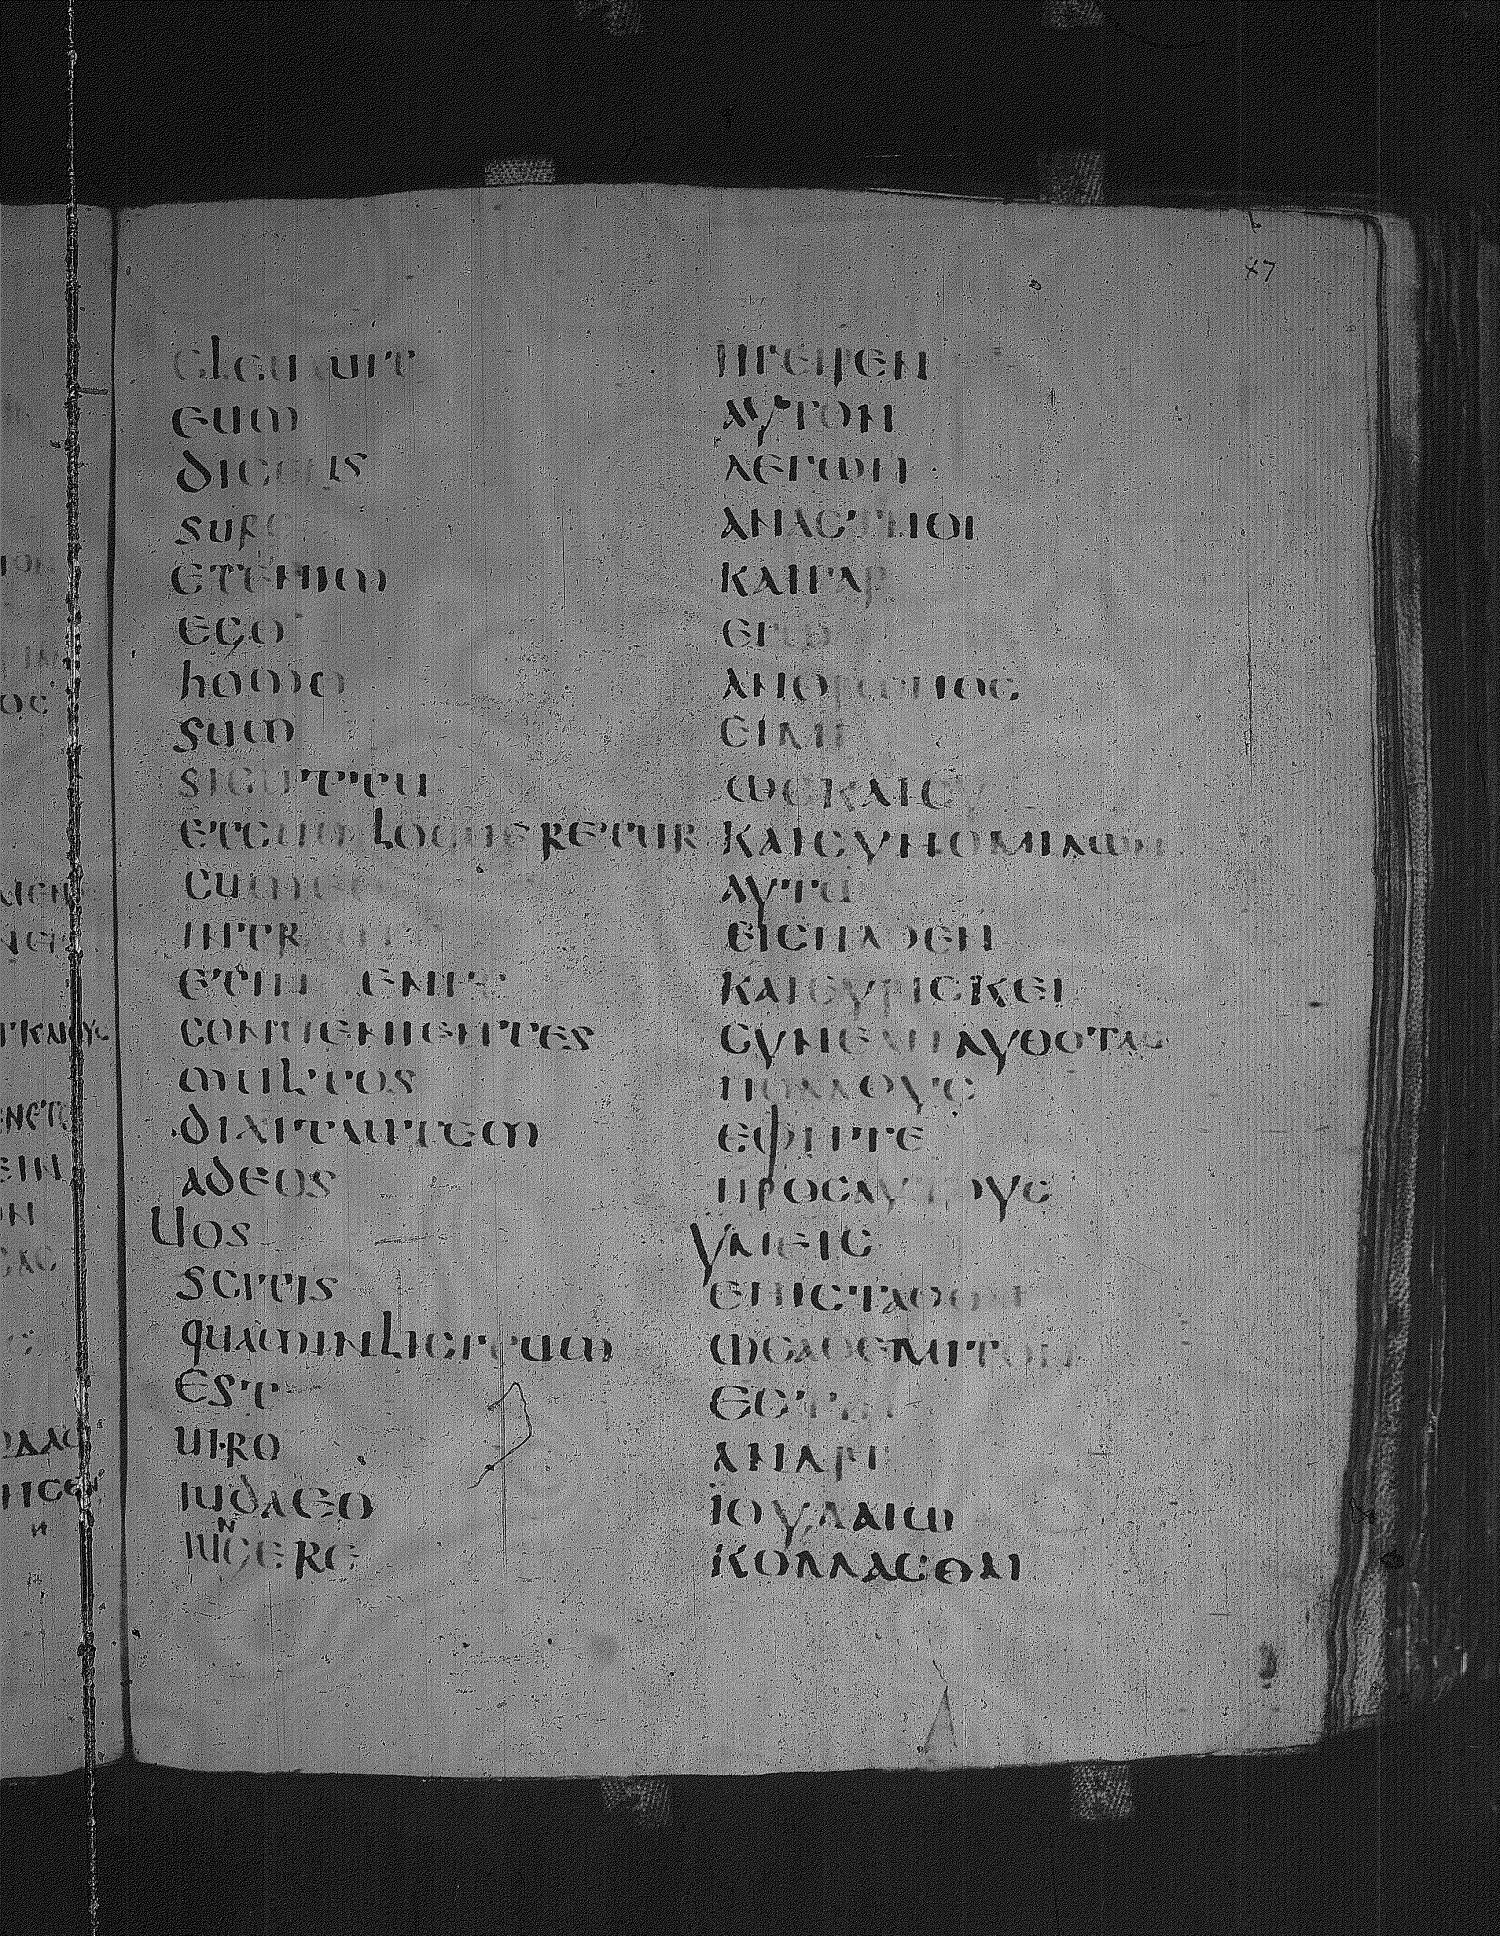 eleuauit
eum
dicens
surge
etenim
ego
homo
sum
sicut et tu
et cum loqueretur
cum
intrauit
et inuenit
conuenientes
multos
dixit autem
ad eos
Uos
scitis
quam inlicitum
est
uiro
iudaeo
iungere
ΗΓΕΙΡΕΝ
ΑΥΤΟΝ
ΛΕΓΩΝ
ΑΝΑϹΤΗΘΙ
ΚΑΙ ΓΑΡ
ΕΓΩ
ΑΝΘΡΩΠΟϹ
ΕΙΜΙ
ΩϹ ΚΑΙ ϹΥ
ΚΑΙ ϹΥΝΟΜΙΛΩΝ
ΑΥΤΩ
ΕΙϹΗΛΘΕΝ
ΚΑΙ ΕΥΡΙϹΚΕΙ
ϹΥΝΕΛΗΛΥΘΟΤΑϹ
ΠΟΛΛΟΥϹ
ΕΦΗ ΤΕ
ΠΡΟϹ ΑΥΤΟΥϹ
ΥΜΕΙϹ
ΩϹ ΑΘΕΜΙΤΟΝ
ΕϹΤΙΝ
ΑΝΔΡΙ
ΙΟΥΔΑΙΩ
ΚΟΛΛΑϹΘΑΙ